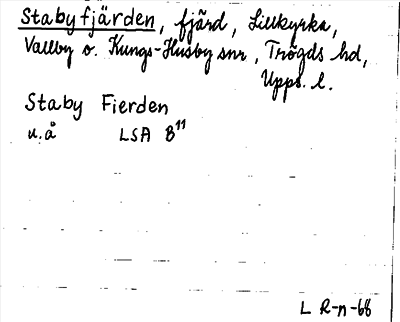 Stabyfjärden, fjärd, Lillkyrka,
Vallby o. Kungs-Husby snr, Trögds hd,
Upps. l.
Staby Fierden
u.å LSA B¹¹
L R-n-68